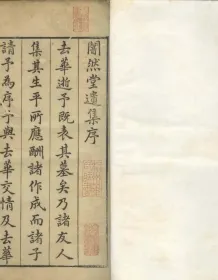 闇然堂遺集序
去華逝予既表其墓矣乃諸友人
集其生平所應酬諸作成而諸子
請予為序予與去華交情及去華